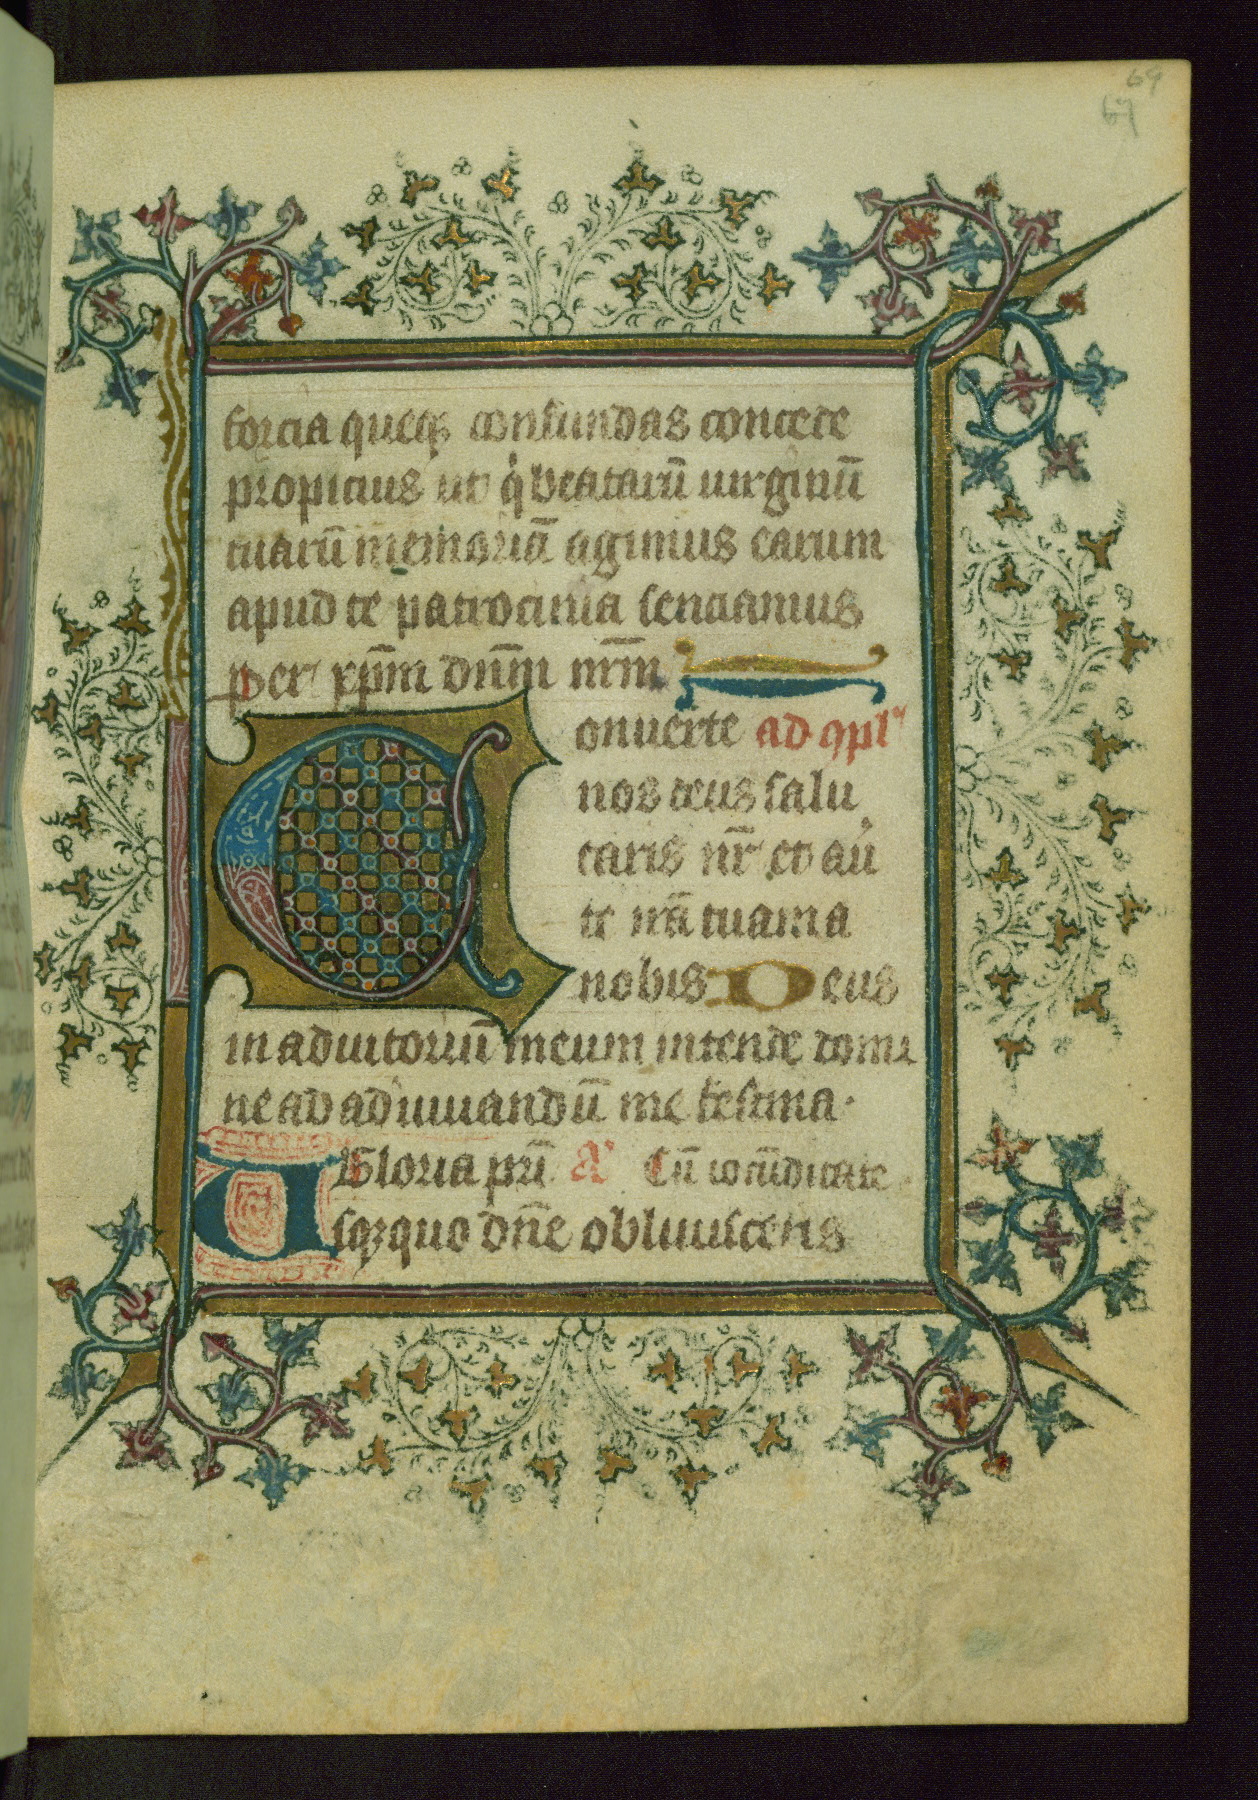 69
69
forcia queqz confundas concede
propicius ut q̇ beatarū uirginū
tuarū memoriā agimus earum
apud te patrocinia senciamus
per xp̄m dn̄m nr̄m
onuerte ad 9pl'
nos deus salu
taris nr̄ et au
te irā tuam a
nobis Deus
in adiutoriū meum intende domi
ne ad adiuuandū me festina·
Gloria pr̄i A' Cū iocūditate
Usqzquo dn̄e obliuisceris